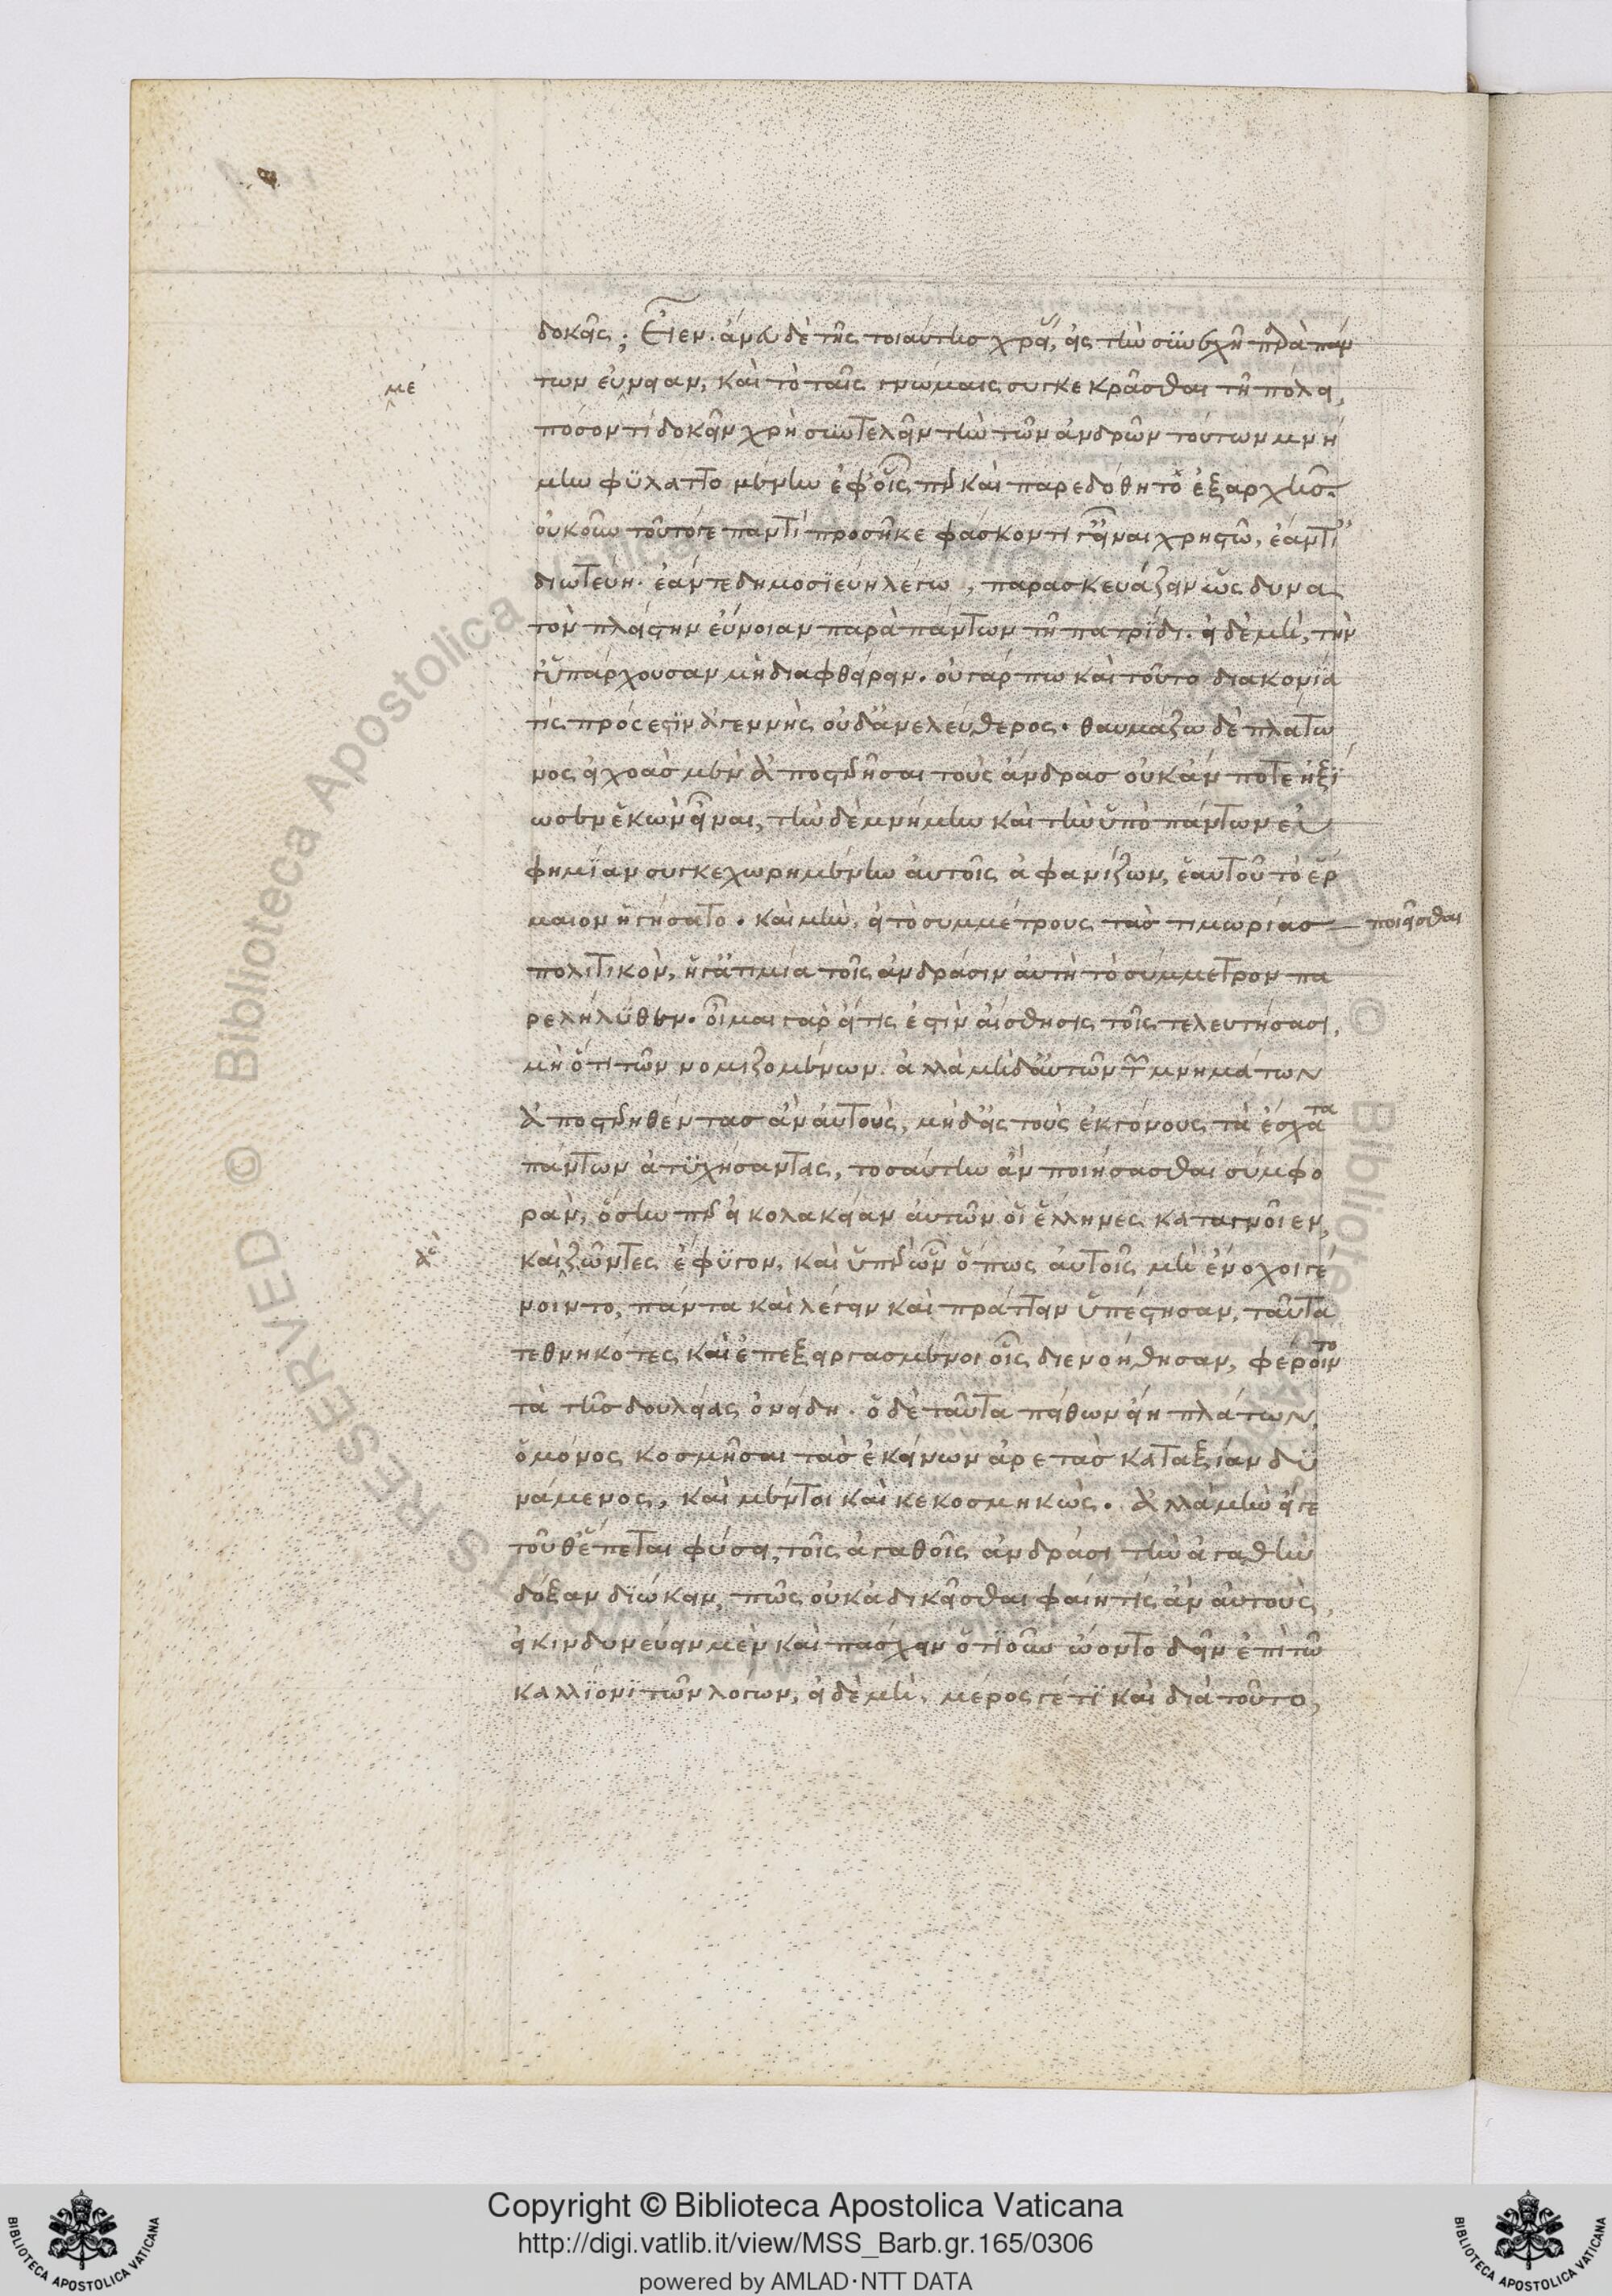 δοκεῖς; Εἶεν. ἄνευ δὲ τῆς τοιαύτης χρείας, εἰς τὴν συνεχῆ παρὰ πάν
των εὔνοιαν, καὶ τὸ ταῖς γνώμαις συγκεκρᾶσθαι τῇ πόλει,
με
πόσον τί δοκεῖν χρὴ συντελεῖν τὴν τῶν ἀνδρῶν τούτων μνή
μην φυλαττομένην ἐφ' οἷσπερ καὶ παρεδόθη τὸ ἐξαρχῆς.
οὐκοῦν τοῦτό γε παντὶ προσῆκε φάσκοντί γ' εἶναι χρηστῷ, ἐάντ' ἰ
διωτεύῃ. ἐάν τε δημοσιεύῃ λέγω, παρασκευάζειν ὡς δυνα
τὸν πλείστην εὔνοιαν παρὰ πάντων τῇ πατρίδι. εἰ δὲ μὴ, τὴν
γ' ὑπάρχουσαν μὴ διαφθείρειν. οὐ γάρ πω καὶ τοῦτο διακονία
τίς πρόσεστιν ἀγεννὴς οὐδ' ἀνελεύθερος. θαυμάζω δὲ πλάτω
νος εἰ χοὰς μὲν ἀποστερῆσαι τοὺς ἄνδρας οὐκ ἄν ποτε ἠξί
ωσεν ἑκὼν εἶναι, τὴν δὲ μνήμην καὶ τὴν ὑπὸ πάντων εὐ
φημίαν συγκεχωρημένην αὐτοῖς ἀφανίζων, ἑαυτοῦ τὸ ἕρ
μαιον ἡγήσατο. καὶ μὴν, εἰ τὸ συμμέτρους τὰς τιμωρίας ποιεῖσθαι
πολιτικὸν, ἥ γ' ἀτιμία τοῖς ἀνδράσιν αὐτὴ τὸ σύμμετρον πα
ρελήλυθεν. οἶμαι γὰρ εἴ τις ἐστὶν αἴσθησις τοῖς τελευτήσασι,
μὴ ὅτι τῶν νομιζομένων. ἀλλὰ μηδ' αὐτῶν τῶν μνημάτων
ἀποστερηθέντας ἂν αὐτοὺς, μηδ' εἰς τοὺς ἐκγόνους τὰ ἔσχατα
πάντων ἀτυχήσαντας, τοσαύτην ἂν ποιήσασθαι συμφο
ρὰν, ὅσηνπερ εἰ κολακείαν αὐτῶν οἱ ἕλληνες καταγνοῖεν,
καὶ ζῶντες ἔφυγον, καὶ ὑπὲρ ὧν ὅπως αὐτοῖς μὴ ἔνοχοι γέ
νοιντο, πάντα καὶ λέγειν καὶ πράττειν ὑπέστησαν, ταῦτα
τεθνηκότες καὶ ἐπεξειργασμένοι οἷς διενοήθησαν, φέροιντο
τὰ τῆς δουλείας ὀνείδη. ὁ δὲ ταῦτα πείθων εἴη πλάτων,
ὁ μόνος κοσμῆσαι τὰς ἐκείνων ἀρετὰς κατ' ἀξίαν δυ
νάμενος, καὶ μέντοι καὶ κεκοσμηκώς. ἀλλὰ μὴν εἴ γε
τοῦθ' ἕπεται φύσει, τοῖς ἀγαθοῖς ἀνδράσι τὴν ἀγαθὴν
δόξαν διώκειν, πῶς οὐκ ἀδικεῖσθαι φαίη τίς ἂν αὐτοὺς,
εἰ κινδυνεύειν μὲν καὶ πάσχειν ὁτιοῦν ᾤοντο δεῖν ἐπὶ τῷ
καλλίονι τῶν λόγων, εἰ δὲ μὴ, μέρος γέ τι καὶ διὰ τοῦτο,
Copyright © Biblioteca Apostolica Vaticana
http://digi.vatlib.it/view/MSS_Barb.gr.165/0306
powered by AMLAD·NTT DATA